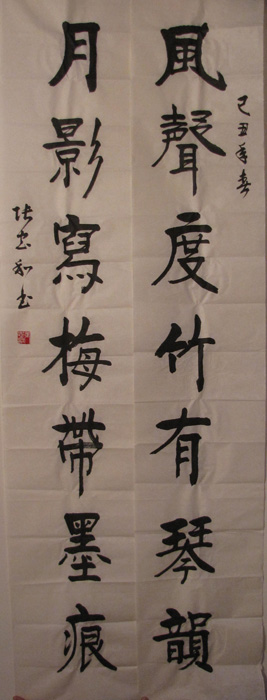 己丑年春
風聲度竹有琴韻
月影寫梅帶墨痕
張忠和书